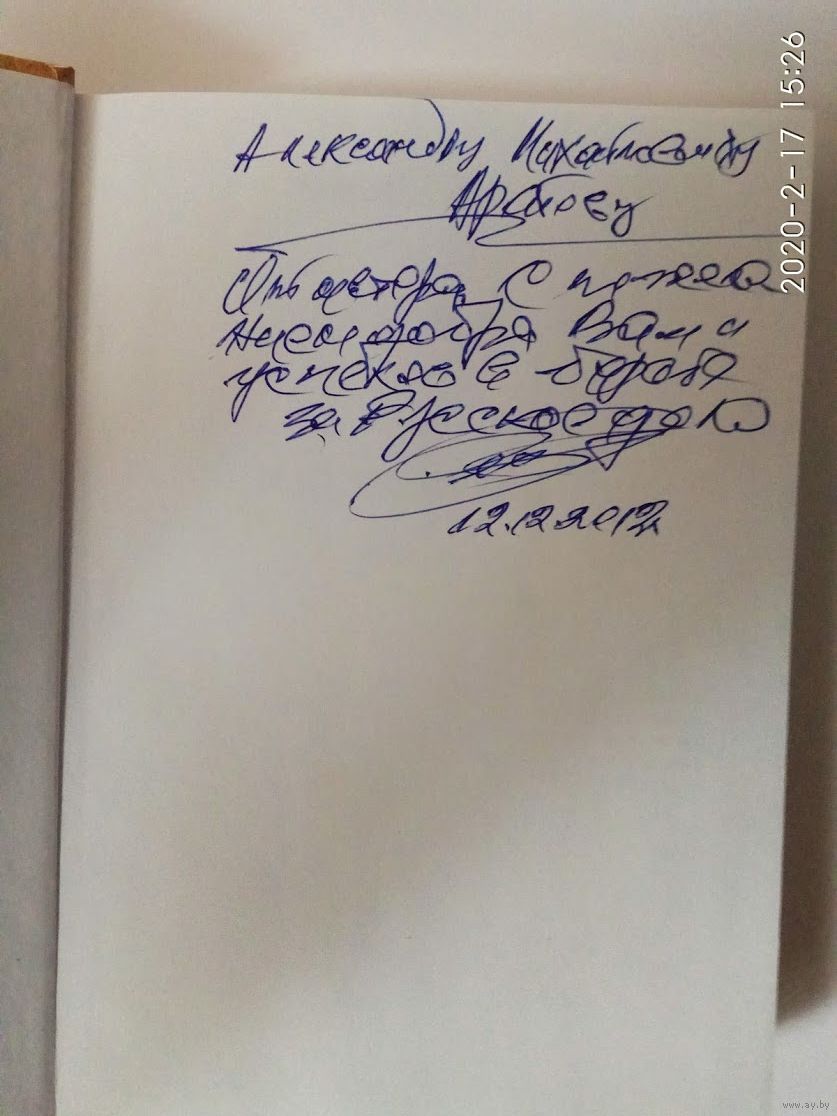 Александру Михайловичу
От автора с пожела
нием добра Вам и
успехов в борьбе
за Русское дело
12.12.2012
2020-2-17 15:26
www.ay.by